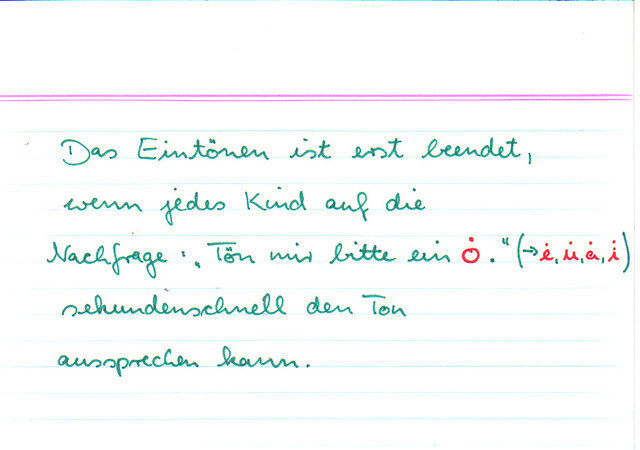 Das Eintönen ist erst beendet,
wenn jedes Kind auf die
Nachfrage: „Tön mir bitte ein ȯ." (→ė, u̇, ȧ, i)
sekundenschnell den Ton
aussprechen kann.